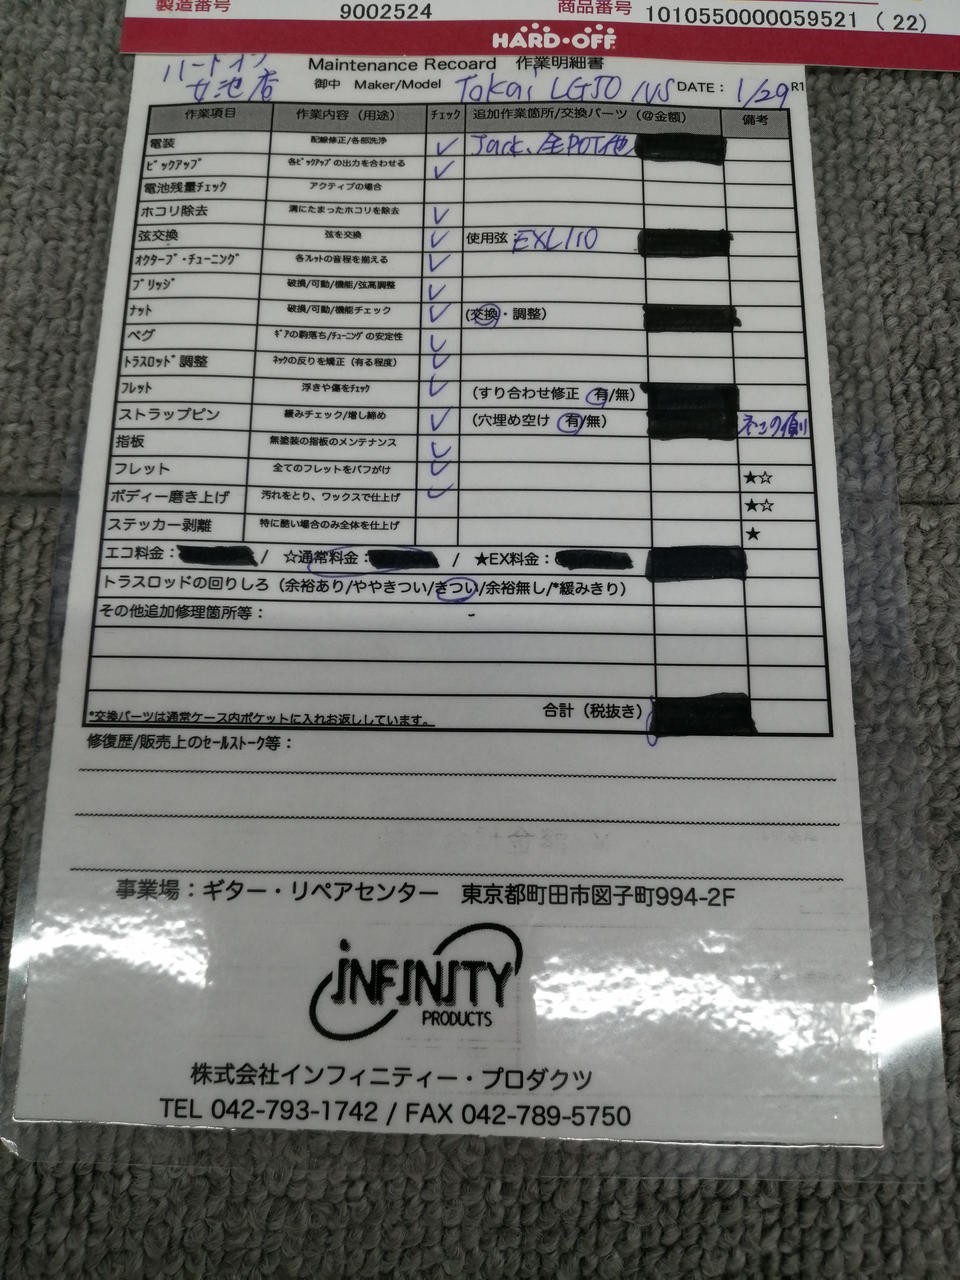 製造番号 9002524 商品番号 1010550000059521 ( 22)
HARD・OFF
ハードオフ Maintenance Recoard 作業明細書
女池店 御中 Maker/Model Tokai LG50 NS DATE： 1/29 R1
作業項目 作業内容（用途） チェック 追加作業箇所/交換パーツ（@金額） 備考
電装 配線修正/各部洗浄 ✓ Jack、全POT他
ﾋﾟｯｸｱｯﾌﾟ 各ﾋﾟｯｸｱｯﾌﾟの出力を合わせる ✓
電池残量ﾁｪｯｸ アクティブの場合
ホコリ除去 溝にたまったホコリを除去 ✓
弦交換 弦を交換 ✓ 使用弦： EXL110
ｵｸﾀｰﾌﾞ・ﾁｭｰﾆﾝｸﾞ 各ﾌﾚｯﾄの音程を揃える ✓
ﾌﾞﾘｯｼﾞ 破損/可動/機能/弦高調整 ✓
ﾅｯﾄ 破損/可動/機能チェック ✓ (交換・調整)
ペグ ｷﾞｱの駒落ち/ﾁｭｰﾆﾝｸﾞの安定性 ✓
ﾄﾗｽﾛｯﾄﾞ調整 ﾈｯｸの反りを矯正（有る程度） ✓
ﾌﾚｯﾄ 浮きや傷をﾁｪｯｸ ✓ (すり合わせ修正 有/無)
ストラップピン 緩みチェック/増し締め ✓ (穴埋め空け 有/無) ネック側
指板 無塗装の指板のメンテナンス ✓
フレット 全てのフレットをバフがけ ✓ ★☆
ボディー磨き上げ 汚れをとり、ワックスで仕上げ ✓ ★☆
ステッカー剥離 特に酷い場合のみ全体を仕上げ ★
エコ料金： / ☆通常料金： / ★EX料金：
トラスロッドの回りしろ（余裕あり/ややきつい/きつい/余裕無し/*緩みきり）
その他追加修理箇所等： -
*交換パーツは通常ケース内ポケットに入れお返ししています。 合計（税抜き）
修復歴/販売上のｾｰﾙｽﾄｰｸ等：
事業場：ギター・リペアセンター 東京都町田市図子町994-2F
iNFiNiTY
PRODUCTS
株式会社インフィニティー・プロダクツ
TEL 042-793-1742 / FAX 042-789-5750